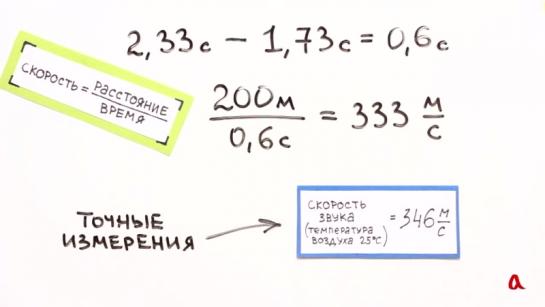 2,33с – 1,73с = 0,6с
СКОРОСТЬ = РАССТОЯНИЕ
ВРЕМЯ
200м
0,6с
= 333 м
с
ТОЧНЫЕ
ИЗМЕРЕНИЯ
СКОРОСТЬ
ЗВУКА
(ТЕМПЕРАТУРА
ВОЗДУХА 25°С)
= 346 м
с
а